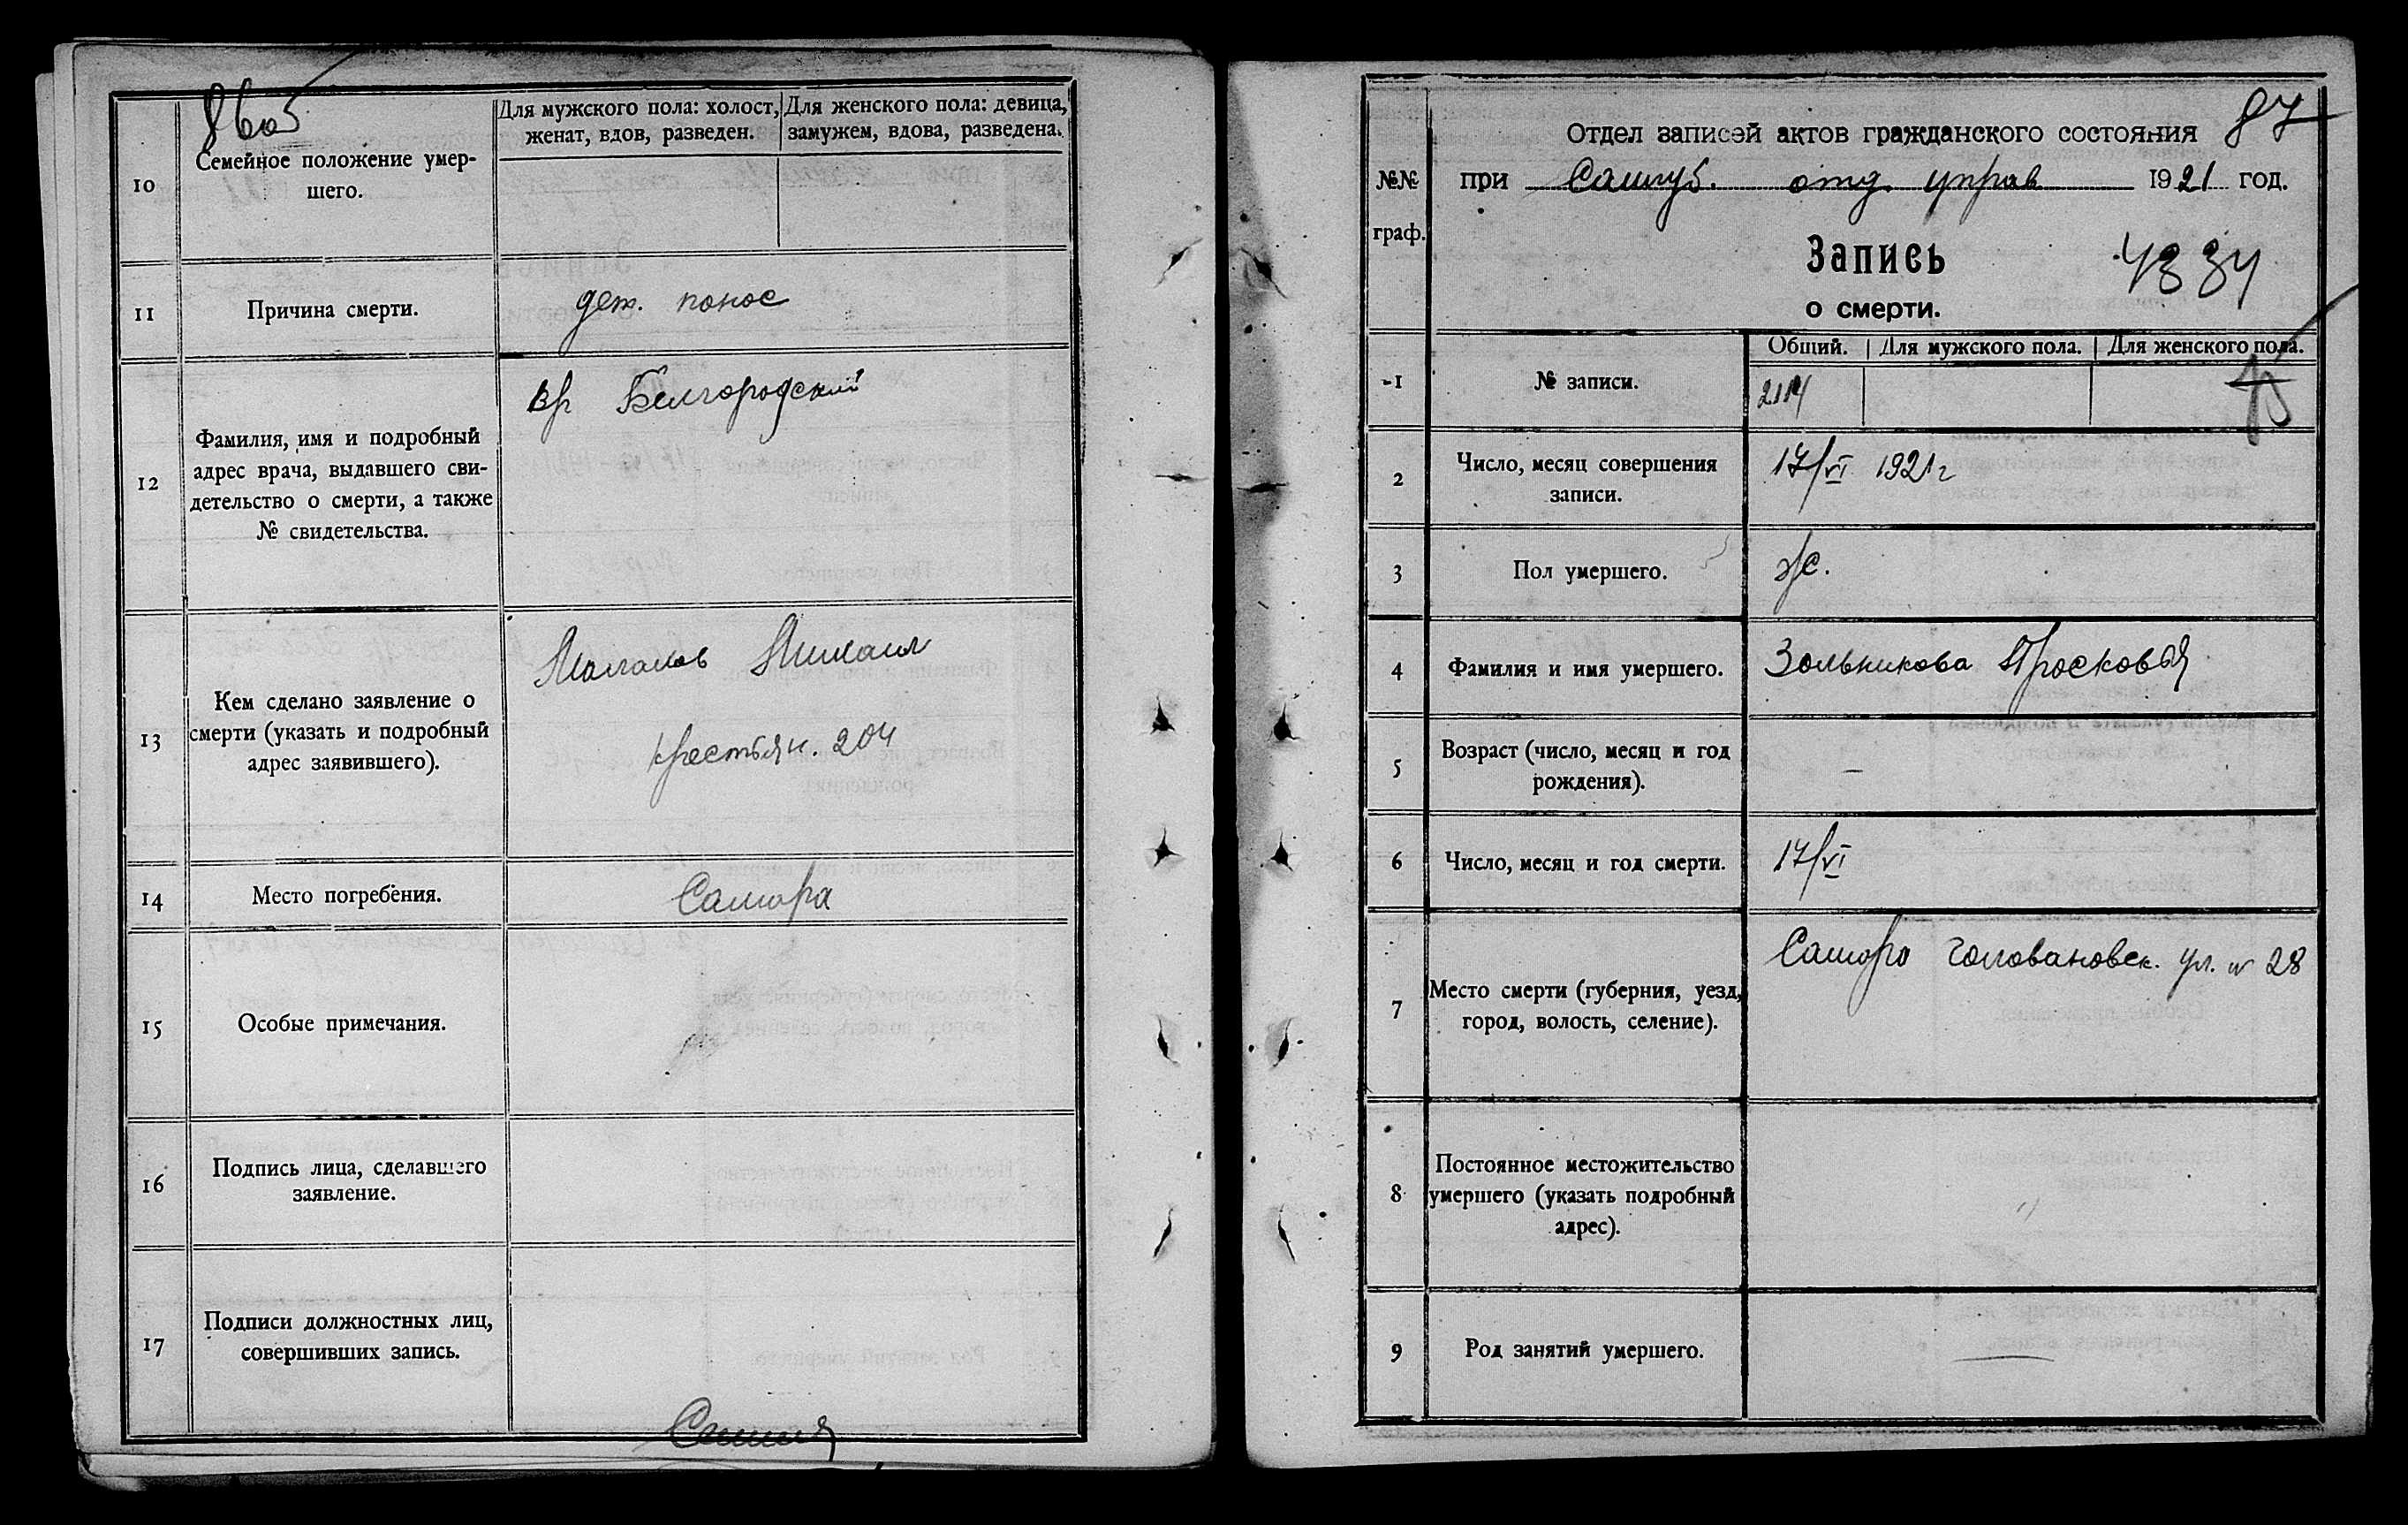 86об
10
Семейное положение умер-
шего.
Для мужского пола: холост,
женат, вдов, разведен.
Для женского пола: девица,
замужем, вдова, разведена.
11
Причина смерти.
дет. понос
12
Фамилия, имя и подробный
адрес врача, выдавшего сви-
детельство о смерти, а также
№ свидетельства.
вр Белгородский
13
Кем сделано заявление о
смерти (указать и подробный
адрес заявившего).
Михаил
крестьян. 204
14
Место погребения.
Самара
15
Особые примечания.
16
Подпись лица, сделавшего
заявление.
17
Подписи должностных лиц,
совершивших запись.
87
№№
граф.
Отдел записей актов гражданского состояния
при Самгуб. отд управ 1921 год.
Запись
о смерти.
4334
Общий. Для мужского пола. Для женского пола.
1
№ записи.
2114
2
Число, месяц совершения
записи.
17/VI 1921 г
3
Пол умершего.
ж.
4
Фамилия и имя умершего.
Зольникова Просковья
5
Возраст (число, месяц и год
рождения).
—
6
Число, месяц и год смерти.
17/VI
7
Место смерти (губерния, уезд,
город, волость, селение).
Самара Головановск. ул. № 28
8
Постоянное местожительство
умершего (указать подробный
адрес).
9
Род занятий умершего.